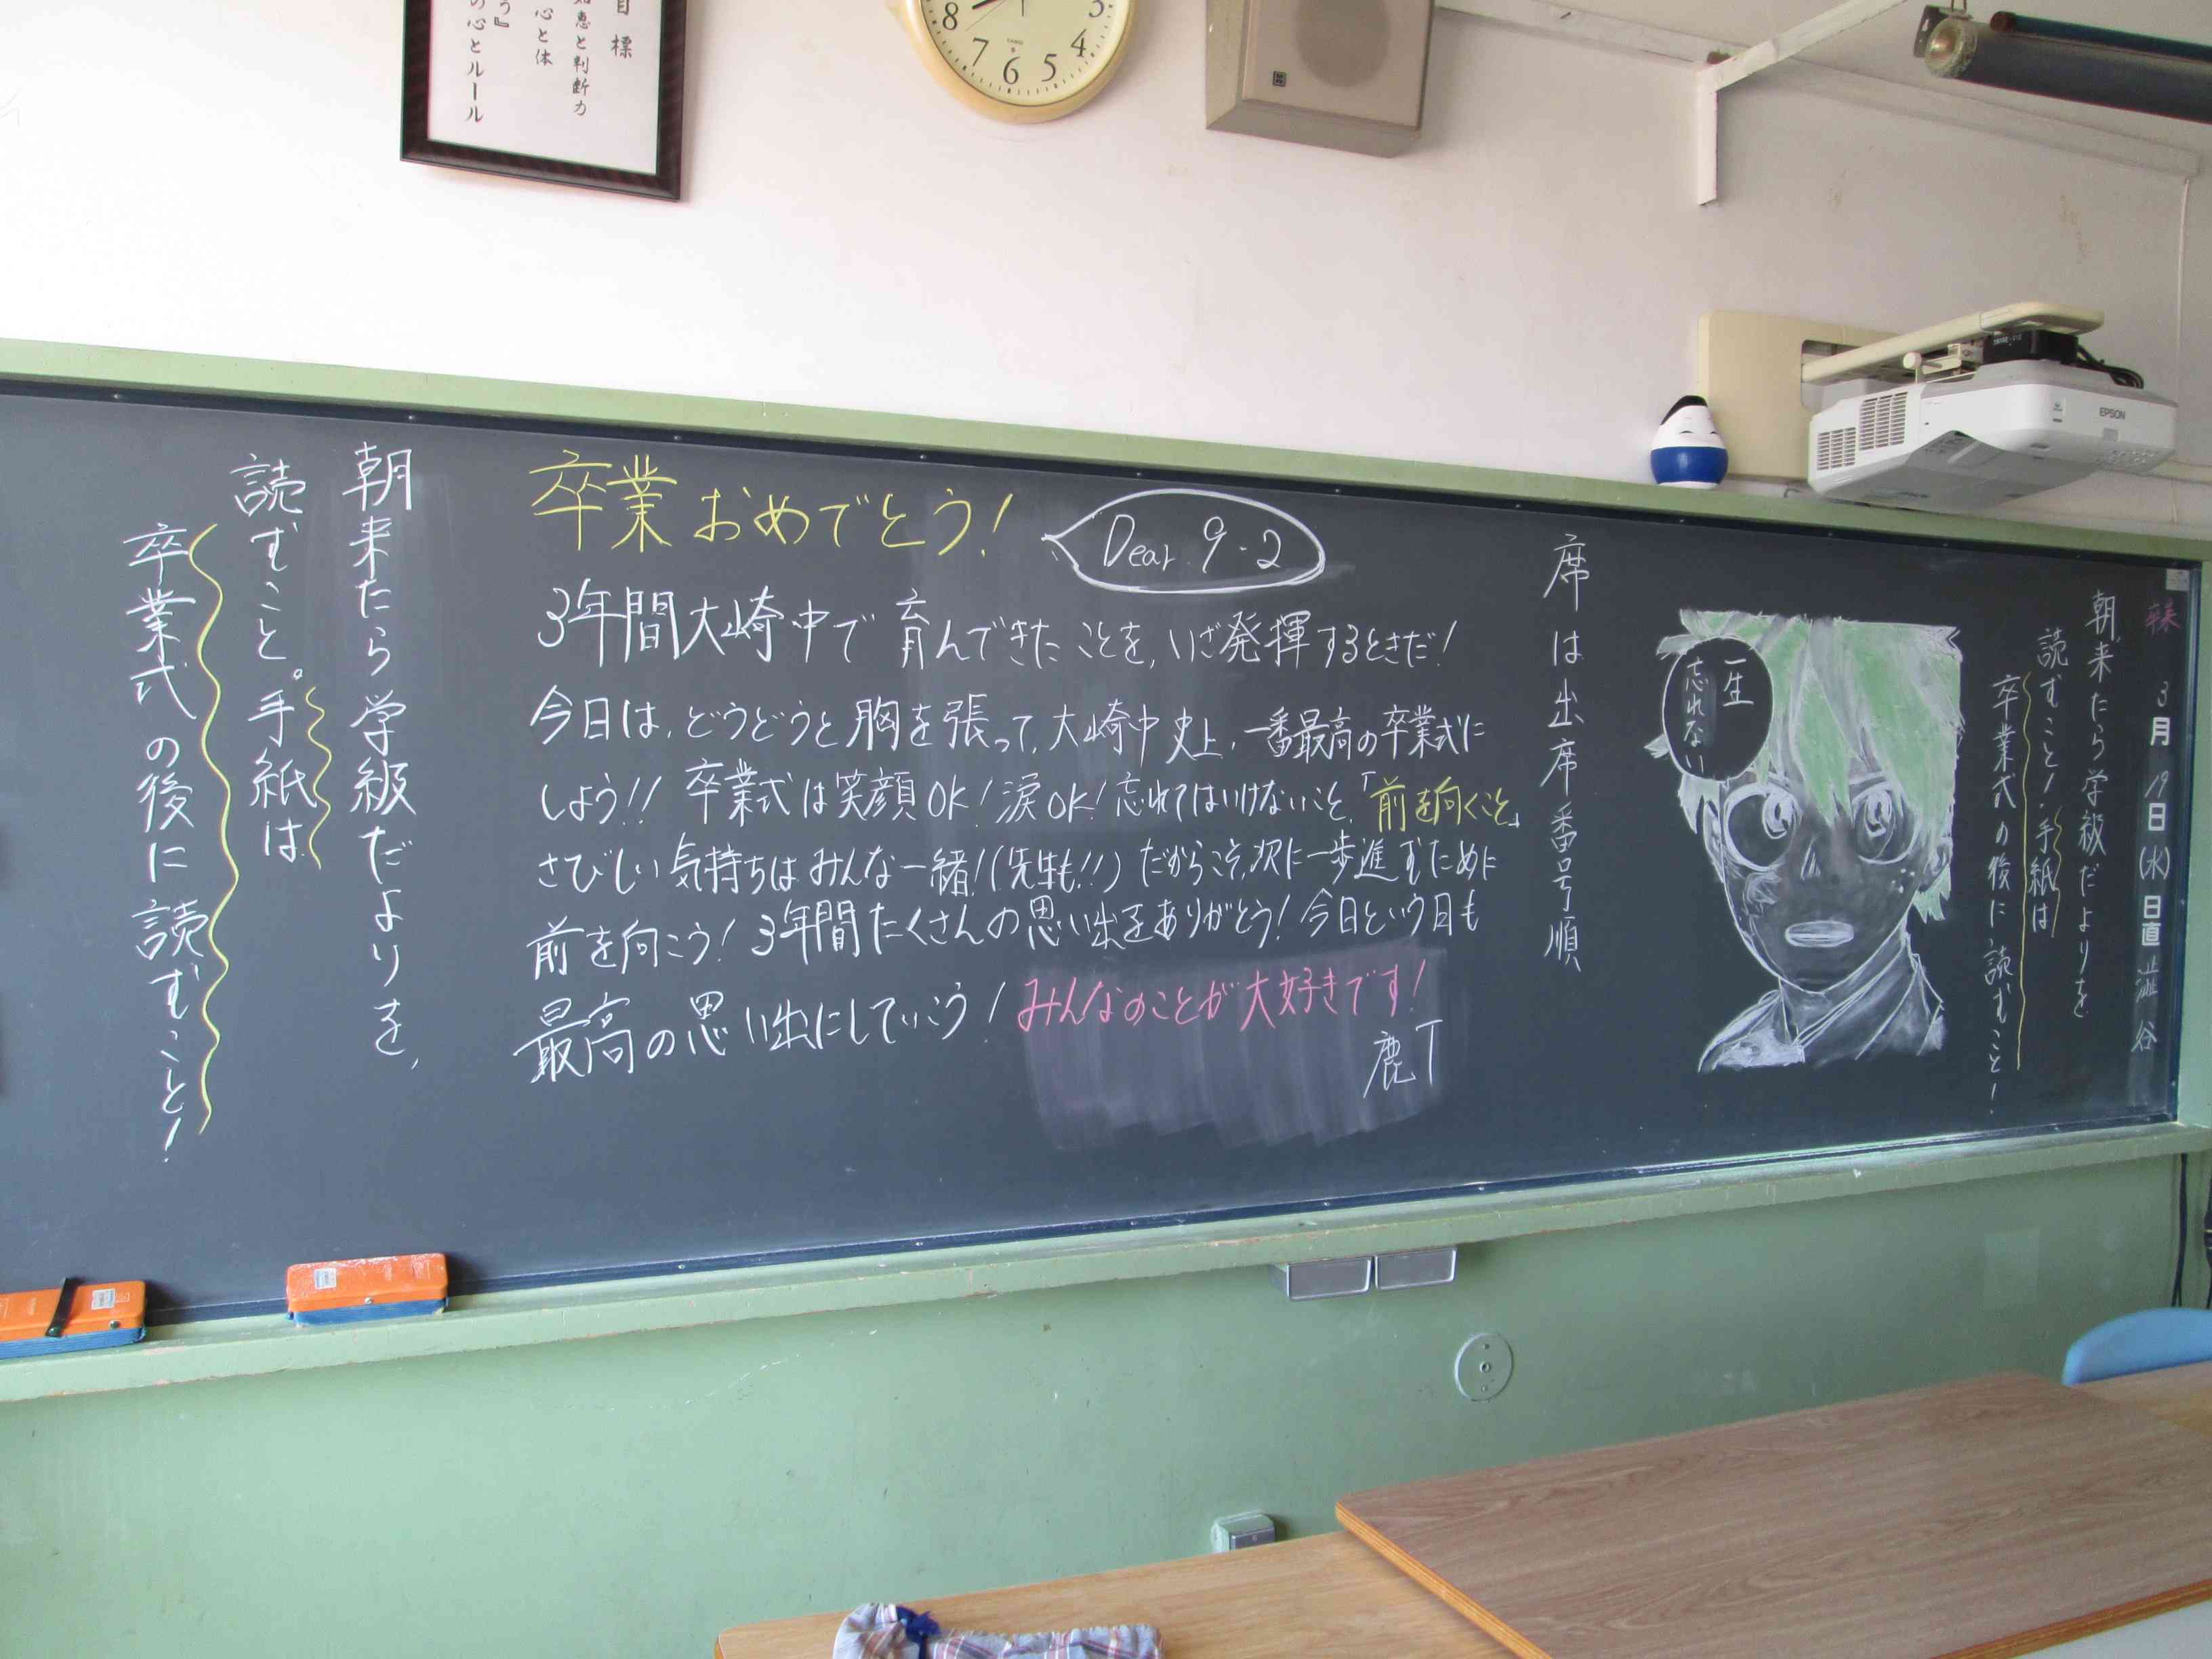 目標
知恵と判断力
心と体
う』
の心とルール
8
7
6
5
4
3
EPSON
卒業
3月19日(水)日直 澁谷
朝来たら学級だよりを
読むこと!手紙は
卒業式の後に読むこと!
一生
忘れない
席は出席番号順
卒業おめでとう!
Dear 9-2
3年間大崎中で育んできたことを、いざ発揮するときだ!
今日は、どうどうと胸を張って、大崎中史上、一番最高の卒業式に
しよう!! 卒業式は笑顔OK!涙OK!忘れてはいけないこと、「前を向くこと」
さびしい気持ちはみんな一緒!(先生も!!) だからこそ、次に一歩進むために
前を向こう! 3年間たくさんの思い出をありがとう! 今日という日も
最高の思い出にしていこう! みんなのことが大好きです!
鹿T
朝来たら学級だよりを、
読むこと。手紙は
卒業式の後に読むこと!